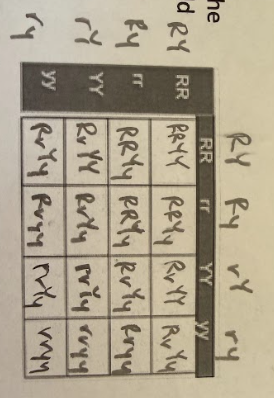 he
d
RY Ry rY ry
RR rr YY yy
RY RR RRYY RRYy RrYY RrYy
Ry rr RRYy RRYy RrYy Rryy
rY YY RrYY RrYy rrYy rryy
ry yy RrYy Rryy rrYy rryy